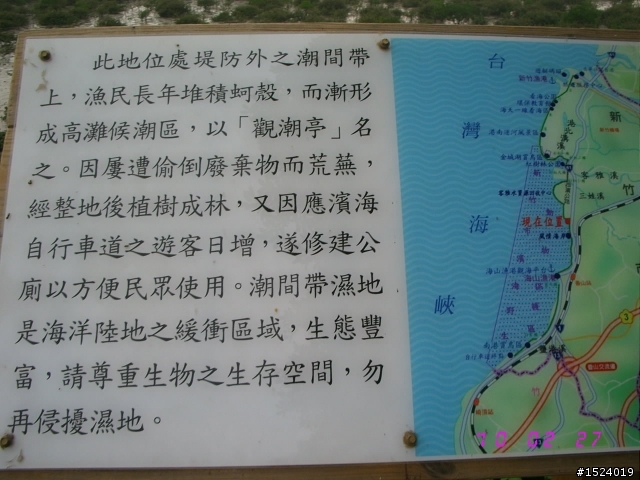 此地位處堤防外之潮間帶
上，漁民長年堆積蚵殼，而漸形
成高灘候潮區，以「觀潮亭」名
之。因屢遭偷倒廢棄物而荒蕪，
經整地後植樹成林，又因應濱海
自行車道之遊客日增，遂修建公
廁以方便民眾使用。潮間帶濕地
是海洋陸地之緩衝區域，生態豐
富，請尊重生物之生存空間，勿
再侵擾濕地。
台
灣
海
峽
新
竹
客雅溪
三姓溪
現在位置
海山漁港觀海平台
海山漁港
香山站
南港賞鳥區
香山交流道
竹
3
10 02 27
#1524019